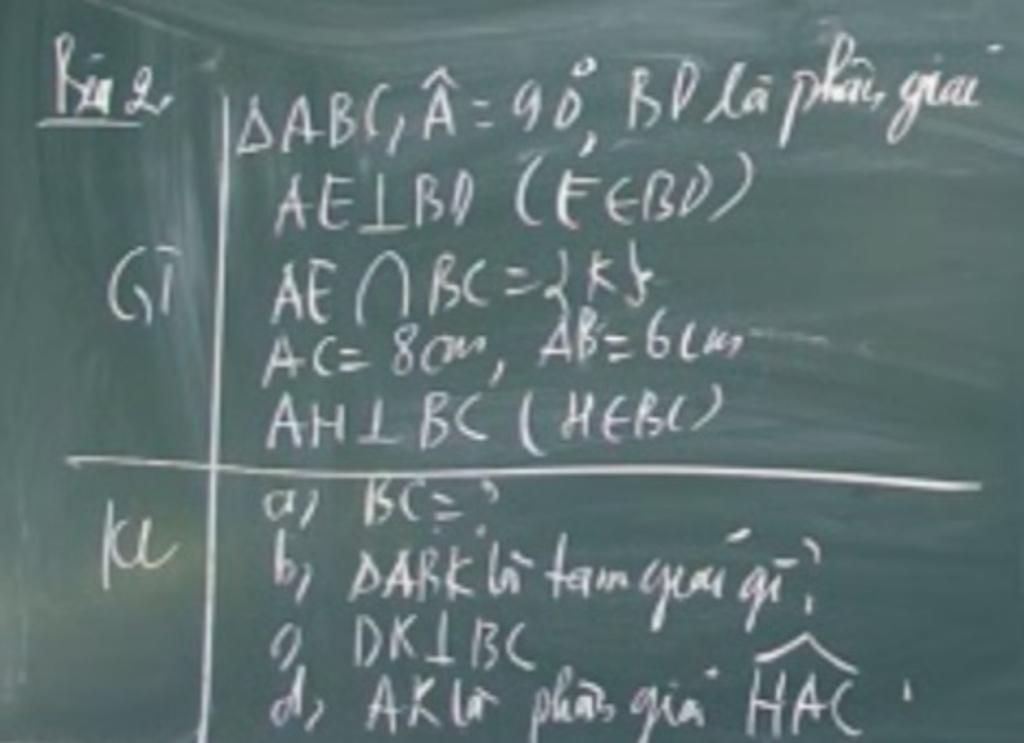 Bài 2,
ΔABC, Â = 90°, BD là phân giác
AE⊥BD (E∈BD)
GT
AE ∩ BC = {K}
AC = 8cm, AB = 6cm
AH⊥BC (H∈BC)
KL
a, BC = ?
b, ΔABK là tam giác gì?
c, DK⊥BC
d, AK là phân giác \widehat{HAC}.